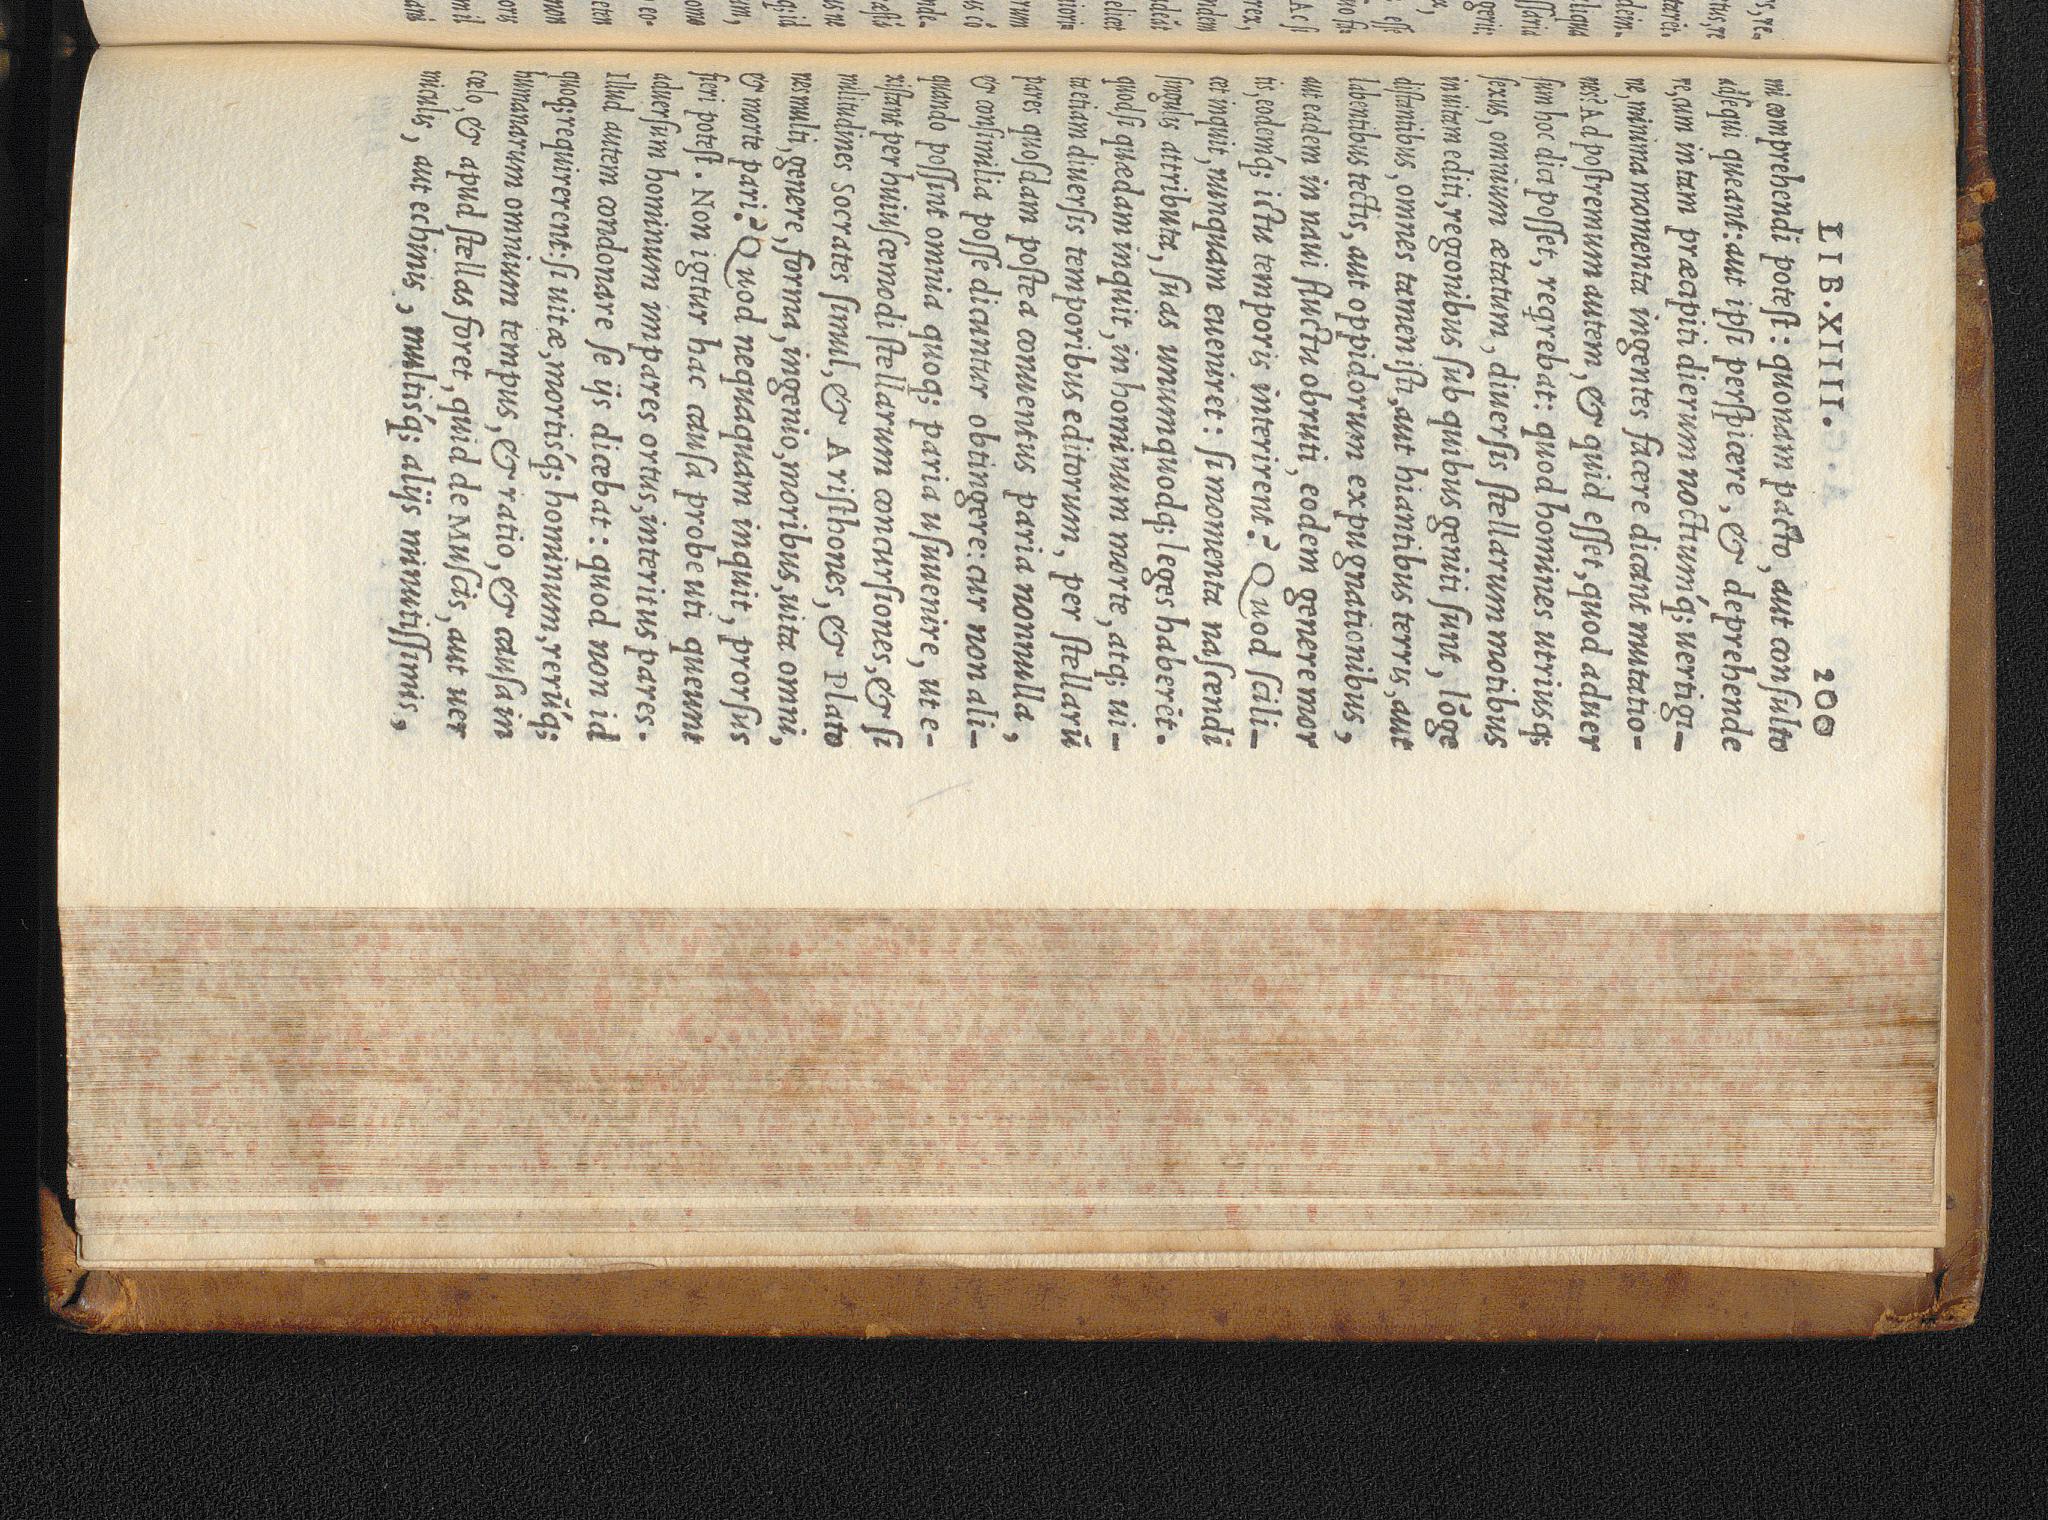 LIB. XIIII. 200
ni comprehendi poteſt: quonam pacto, aut conſulto
adſequi queant: aut ipſi perſpicere, & deprehende
re, cum in tam præcipiti dierum noctiumq́; uertigi-
ne, minima momenta ingentes facere dicant mutatio-
nes? Ad poſtremum autem, & quid eſſet, quod aduer
ſum hoc dici poſſet, reqrebat: quod homines utriusq;
ſexus, omnium ætatum, diuerſis ſtellarum motibus
in uitam editi, regionibus ſub quibus geniti ſunt, lõge
diſtantibus, omnes tamen iſti, aut hiantibus terris, aut
labentibus tectis, aut oppidorum expugnationibus,
aut eadem in naui fluctu obruti, eodem genere mor
tis, eodemq́; ictu temporis interirent? Quod ſcili-
cet inquit, nunquam eueniret: ſi momenta naſcendi
ſingulis attributa, ſuas unumquodq; leges haberẽt.
quodſi quædam inquit, in hominum morte, atq; ui-
ta etiam diuerſis temporibus editorum, per ſtellarũ
pares quoſdam poſtea conuentus paria nonnulla,
& conſimilia poſſe dicuntur obtingere: cur non ali-
quando poſſint omnia quoq; paria uſuuenire, ut e-
xiſtant per huiuſcemodi ſtellarum concurſiones, & ſi
militudines Socrates ſimul, & Ariſthones, & Plato
nes multi, genere, forma, ingenio, moribus, uita omni,
& morte pari? Quod nequaquam inquit, prorſus
fieri poteſt. Non igitur hac cauſa probe uti queunt
aduerſum hominum impares ortus, interitus pares.
Illud autem condonare ſe ijs dicebat: quod non id
quoq; requirerent: ſi uitæ, mortisq́; hominum, rerũq́;
humanarum omnium tempus, & ratio, & cauſa in
cœlo, & apud ſtellas foret, quid de Muſcis, aut uer
miculis, aut echinis, multisq́; alijs minutiſſimis,